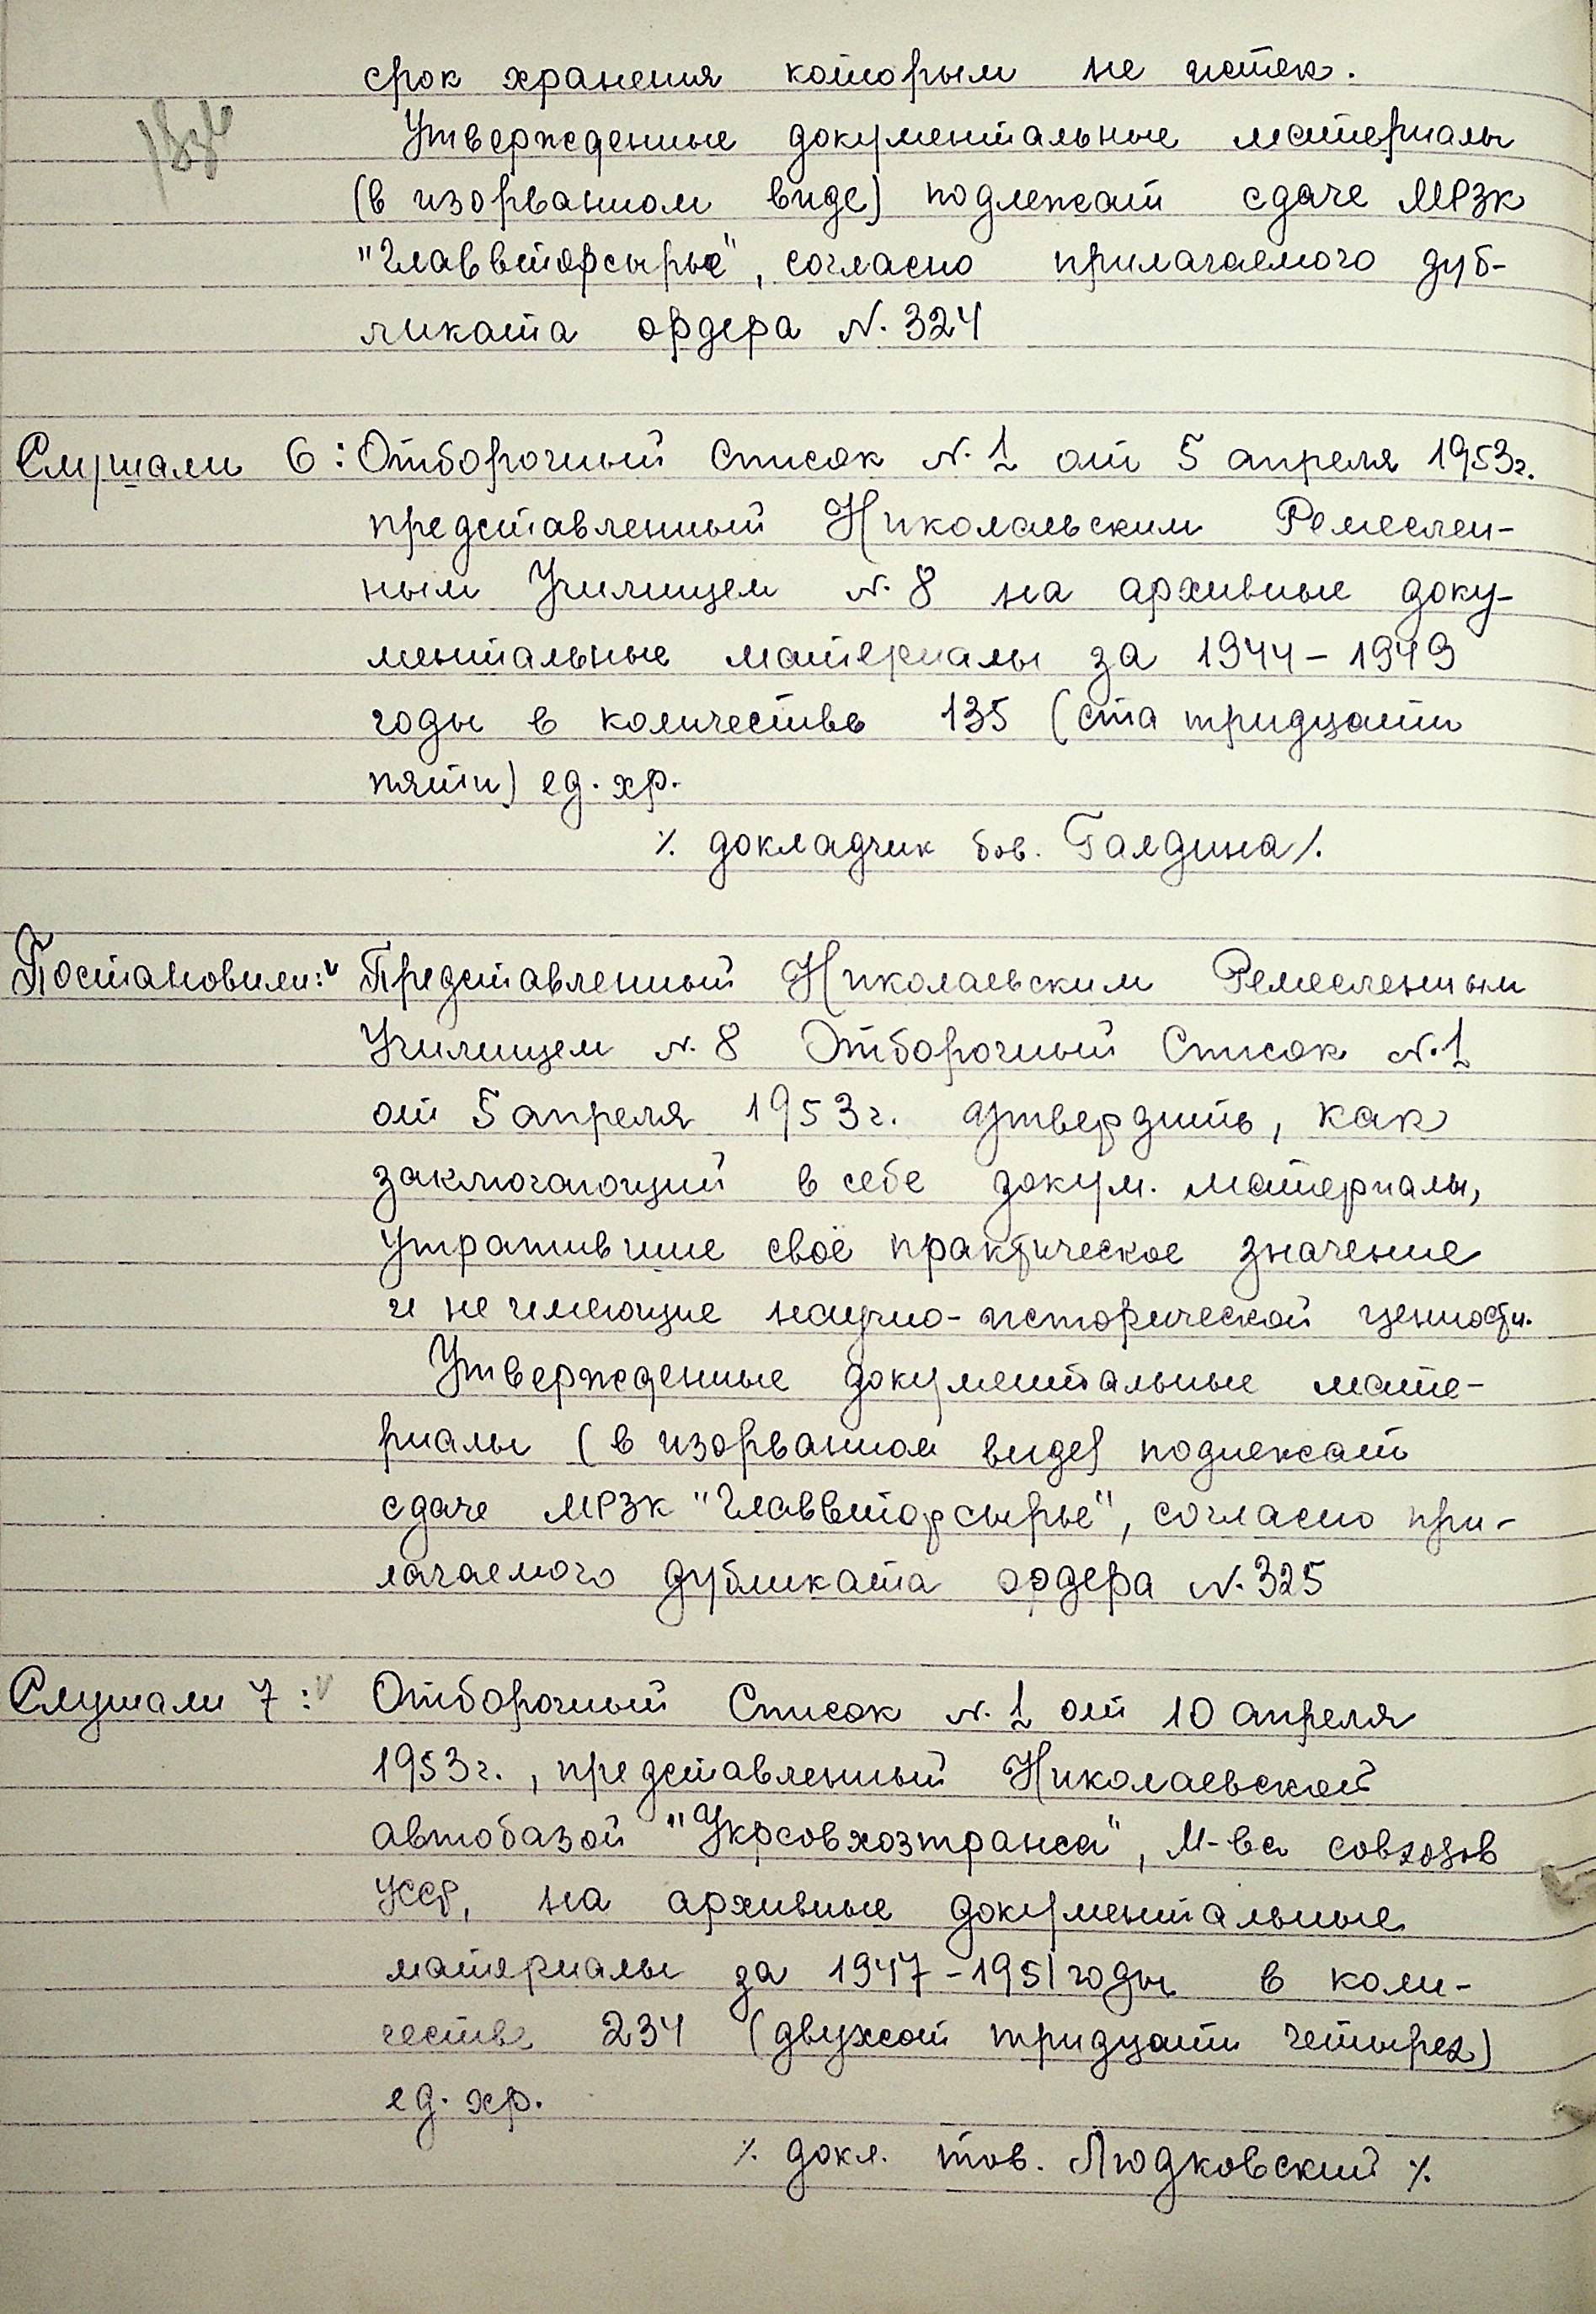 срок хранения которым не истек.
Утвержденные документальные материалы
(в изорванном виде) подлежат сдаче МРЗК
"Главвторсырье", согласно прилагаемого дуб-
ликата ордера N. 324
Слушали 6: Отборочный Список N. 1 от 5 апреля 1953г.
представленный Николаевским Ремеслен-
ным Училищем N. 8 на архивные доку-
ментальные материалы за 1944 - 1949
годы в количестве 135 (ста тридцати
пяти) ед. хр.
% докладчик тов. Галдина /.
Постановили: Представленный Николаевским Ремесленным
Училищем N. 8 Отборочный Список N. 1
от 5 апреля 1953г. утвердить, как
заключающий в себе докум. материалы,
утратившие своё практическое значение
и не имеющие научно-исторической ценности.
Утвержденные документальные мате-
риалы (в изорванном виде) подлежат
сдаче МРЗК "Главвторсырье", согласно при-
лагаемого дубликата ордера N. 325
Слушали 7: Отборочный Список N. 1 от 10 апреля
1953г., представленный Николаевской
автобазой "Укрсовхозтранса", М-ва совхозов
УССР, на архивные документальные
материалы за 1947-1951 годы в коли-
честве 234 (двухсот тридцати четырех)
ед. хр.
% докл. тов. Людковский %